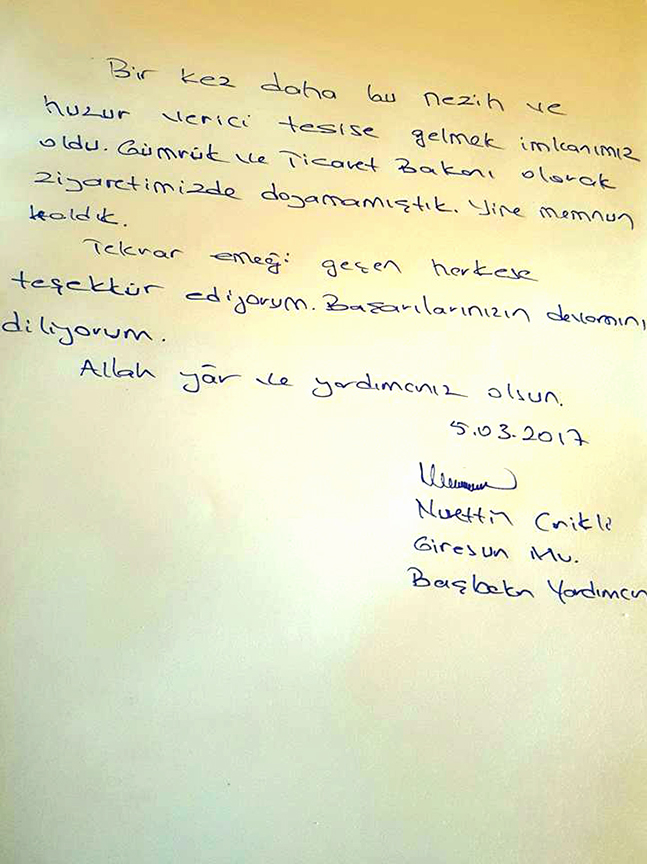 Bir kez daha bu nezih ve
huzur verici tesise gelmek imkanımız
oldu. Gümrük ve Ticaret Bakanı olarak
ziyaretimizde doyamamıştık. Yine memnun
kaldık.
Tekrar emeği geçen herkese
teşekkür ediyorum. Başarılarınızın devamını
diliyorum.
Allah yâr ve yardımcınız olsun.
5.03.2017
Nurettin Canikli
Giresun Mv.
Başbakan Yardımcısı